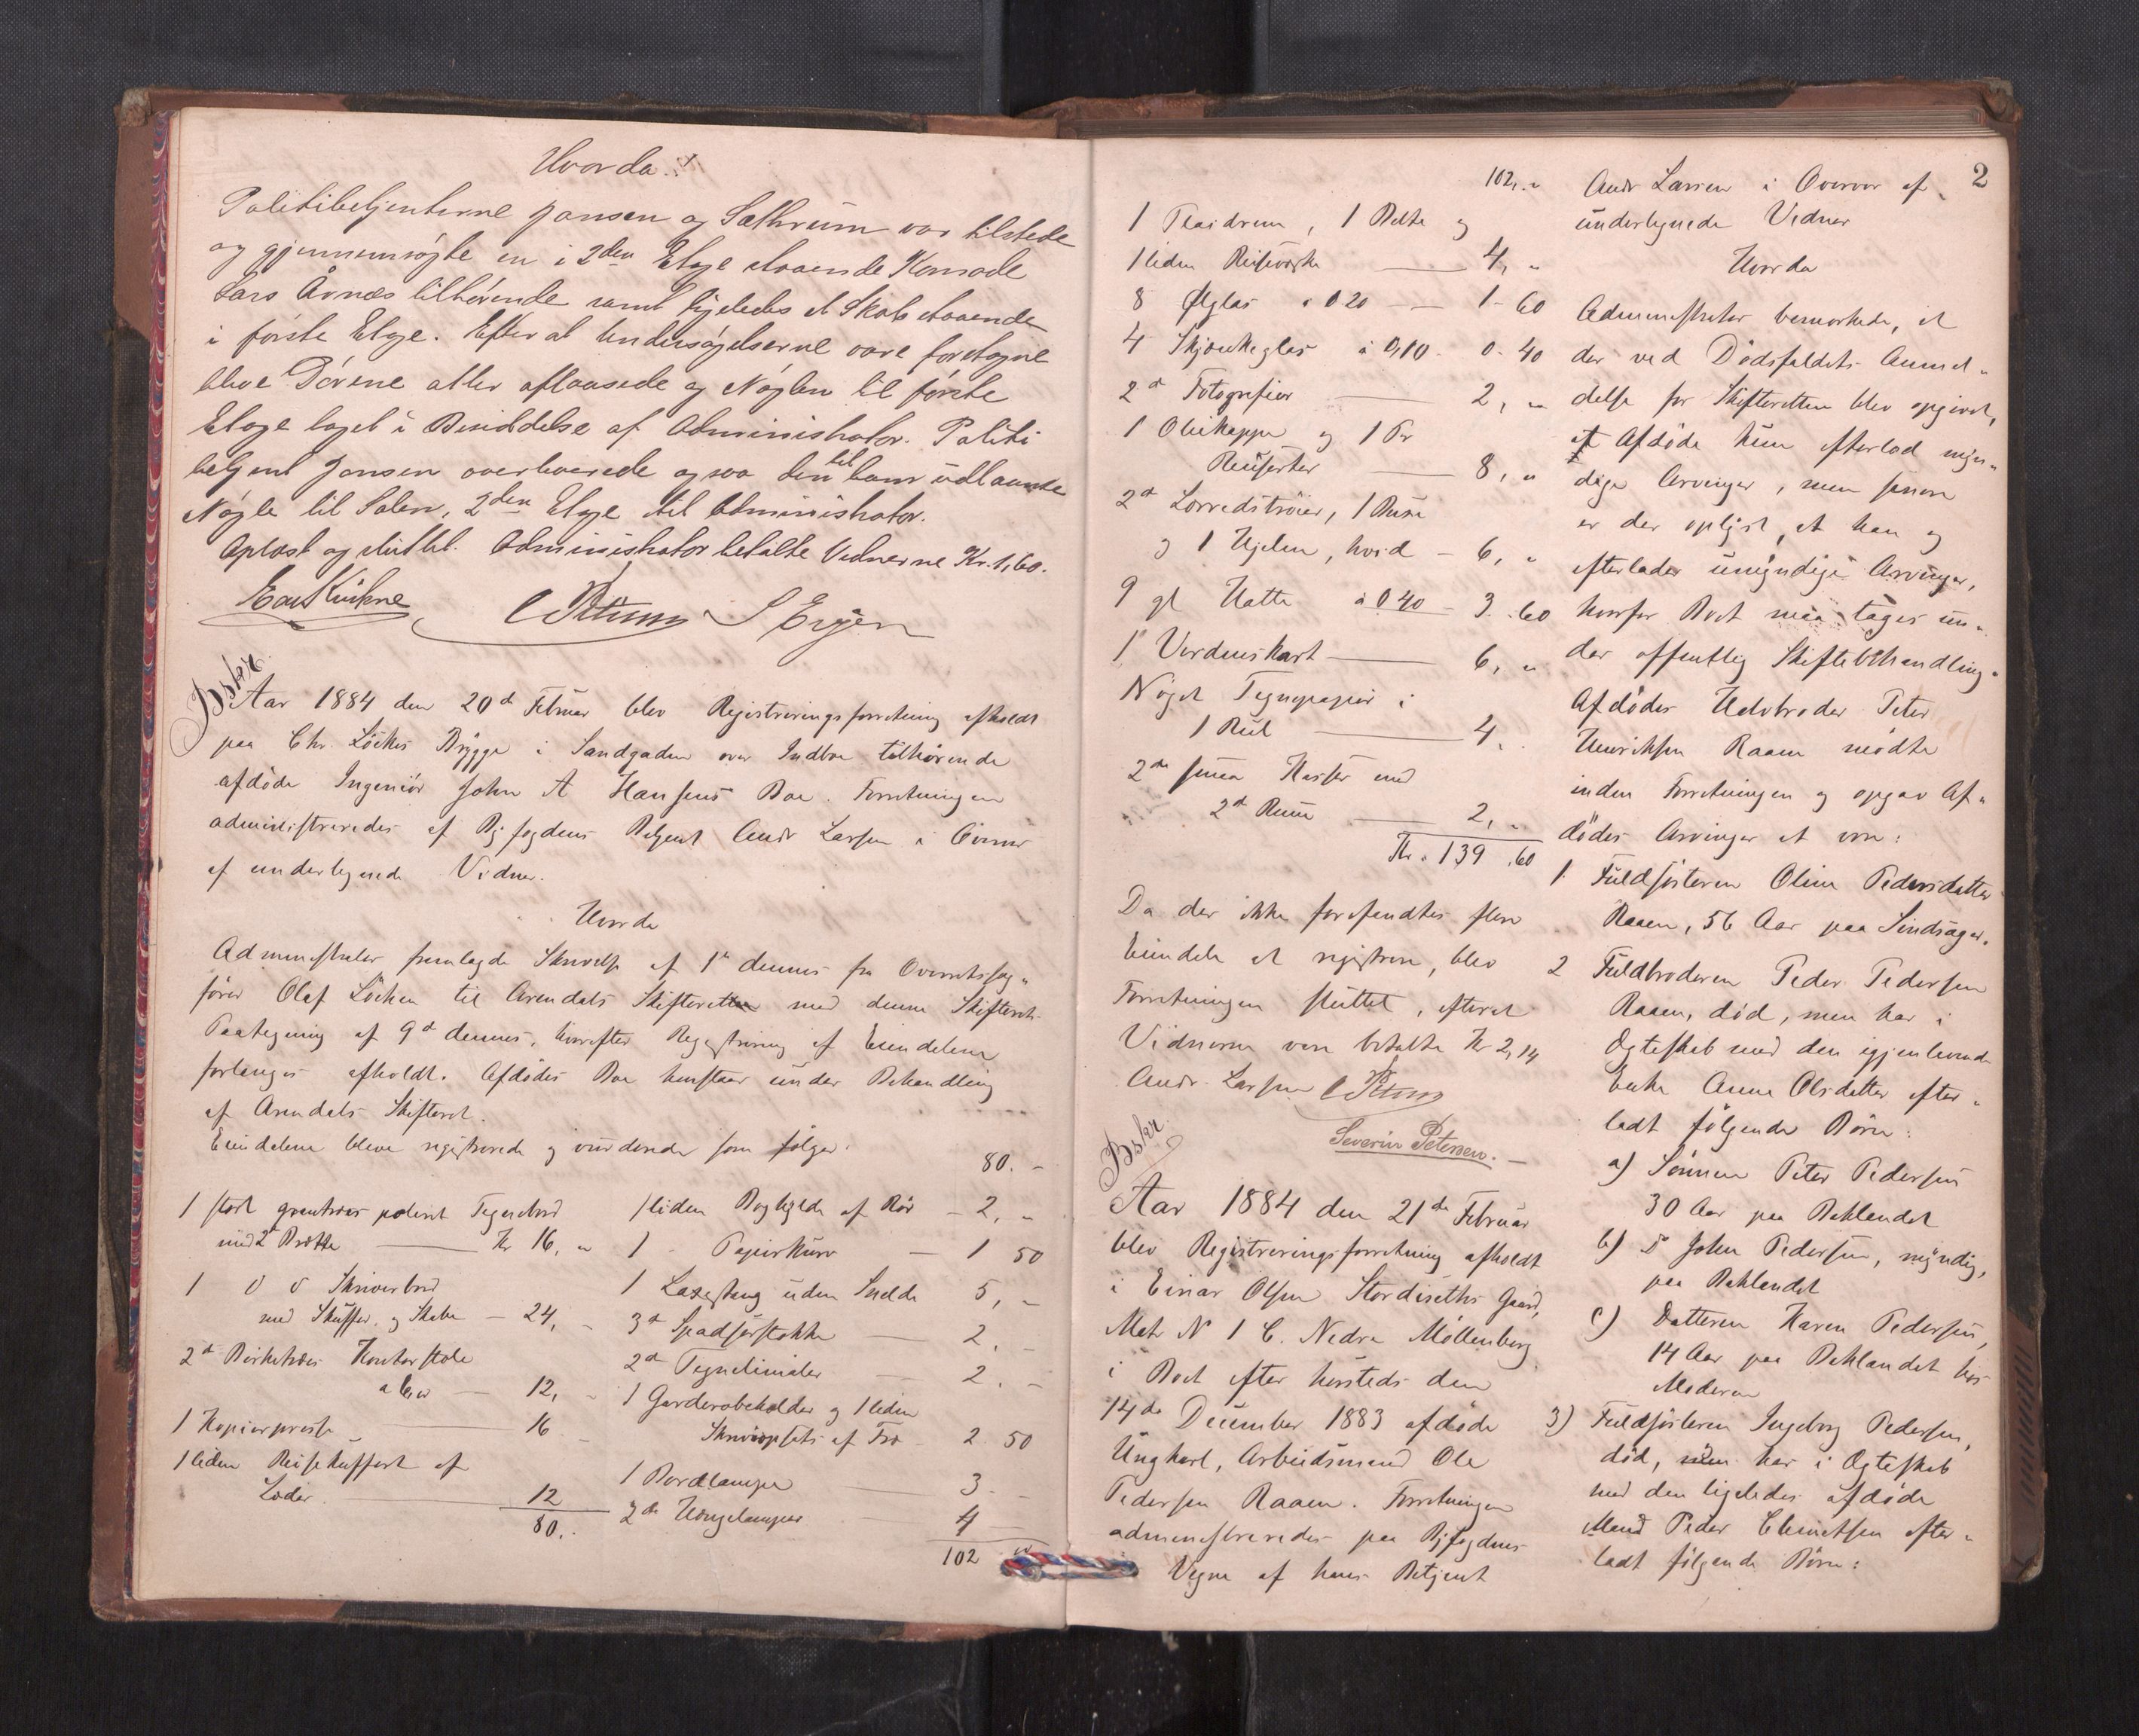 Hvorda:
Politibetjenterne Jansen og Sæthrum var tilstede
og gjennemsøgte en i 2den Etage staaende Komode
Lars Aunæs tilhørende samt ligeledes et Skab staaende
i første Etage. Efter at Undersøgelserne vare foretagne
bleve Dørene atter aflaasede og Nøglen til første
Etage taget i Besiddelse af Administrator. Politi
betjent Jansen overleverede ogsaa den til ham udlaante
Nøgle til Salen, 2den Etage til Administrator.
Oplæst og sluttet. Administrator betalte Vidnerne Kr. 1,60.
Bskr
Aar 1884 den 20d Februar blev Registreringsforretning afholdt
paa Chr. Løckes Brygge i Sandgaden over Indbo tilhørende
afdøde Ingeniør John A Hansens Bo. Forretningen
administreredes af Byfogdens Betjent Andr Larsen i Overvær
af undertegnede Vidner.
Hvorda
Administrator fremlagde Skrivelse af 1d dennes fra Overretssag„
fører Olaf Løcken til Arendals Skifteret med denne Skifterets
Paategning af 9d dennes, hvorefter Registrering af Eiendelene
forlanges afholdt. Afdødes Bo henstaar under Behandling
af Arendals Skifteret.
Eiendelene bleve registrerede og vurderede som følger:
1 stort grantræs poleret Tegnebord
med 2d Brætte Kr 16, „
1 d d Skriverbord
med Skuffer og Skabe – 24, –
2d Birketræs Kontorstole
a 6,00 – 12, –
1 Kopierpresse 16 –
1 liden Reisekuffert af
Læder 12
80..
80. –
1 liden Boghylde af Rør – 2, „
1 Papirkurv – 1 50
1 Laxestang uden Snelde 5, –
3d Spadserstokke 2. –
2d Tegnelinialer 2. –
1 Garderobeholder og 1 liden
af Træ 2 50
1 Bordlampe 3. –
2de Hængelamper 4
102 „
2
102, „
1 Plaidrem, 1 Belte og
1 liden Reisevæske 4, „
8 Ølglas a 0 20 — 1 – 60
4 Skjænkeglas à 0,10 – 0 – 40
2d Fotografier 2, „
1 Oliekappe og 1 Par
Reisestøvler 8, „
2d Lærredstrøier, 1 Buxe
og 1 Hjelm, hvid – 6, „
9 gl Hatte à 0 40 – 3. 60
1 Verdenskart 6, „
Noget Tegnepapir i
1 Rul 4.
2de smaa Kasser med
2d Rum 2, „
Kr. 139. 60
Da der ikke forefandtes flere
Eiendele at registrere, blev
Forretningen sluttet, efterat
Vidnerne vare betalte Kr 2,14
Andr. Larsen
Severin Petersen.
Bskr
Aar 1884 den 21de Februar
blev Registreringsforretning afholdt
i Einar Olsen Gaard,
Matr N 1 C. Nedre Møllenberg
i Boet efter hersteds den
14de December 1883 afdøde
Ungkarl, Arbeidsmand Ole
Pedersen Raaen. Forretningen
administreredes paa Byfogdens
Vegne af hans Betjent
Andr Larsen i Overvær af
undertegnede Vidner
Hvorda
Administrator bemærkede, at
der ved Dødsfaldets Anmel„
delse for Skifteretten blev opgivet,
at Afdøde kun efterlod myn„
dige Arvinger, men senere
er der oplyst, at han og
efterlader umyndige Arvinger,
hvorfor Boet maa tages un„
der offentlig Skiftebehandling.
Afdødes Halvbroder Peter
Henriksen Raaen mødte
inden Forretningen og opgav Af„
dødes Arvinger at være:
1. Fuldsøsteren Oline Pedersdatter
Raaen, 56 Aar paa
2 Fuldbroderen Peder Pedersen
Raaen, død, men har i
Ægteskab med den igjenlevende
Enke Anne Olsdatter efter„
ladt følgende Børn:
a) Sønnen Peter Pedersen
30 Aar paa Baklandet
b) Do John Pedersen, myndig,
paa Baklandet
c) Datteren Karen Pedersen,
14 Aar paa Baklandet hos
Moderen
3) Fuldsøsteren Ingeborg Pedersen,
død, men har i Ægteskab
med den ligeledes afdøde
Mand Peder efter„
ladt følgende Børn: